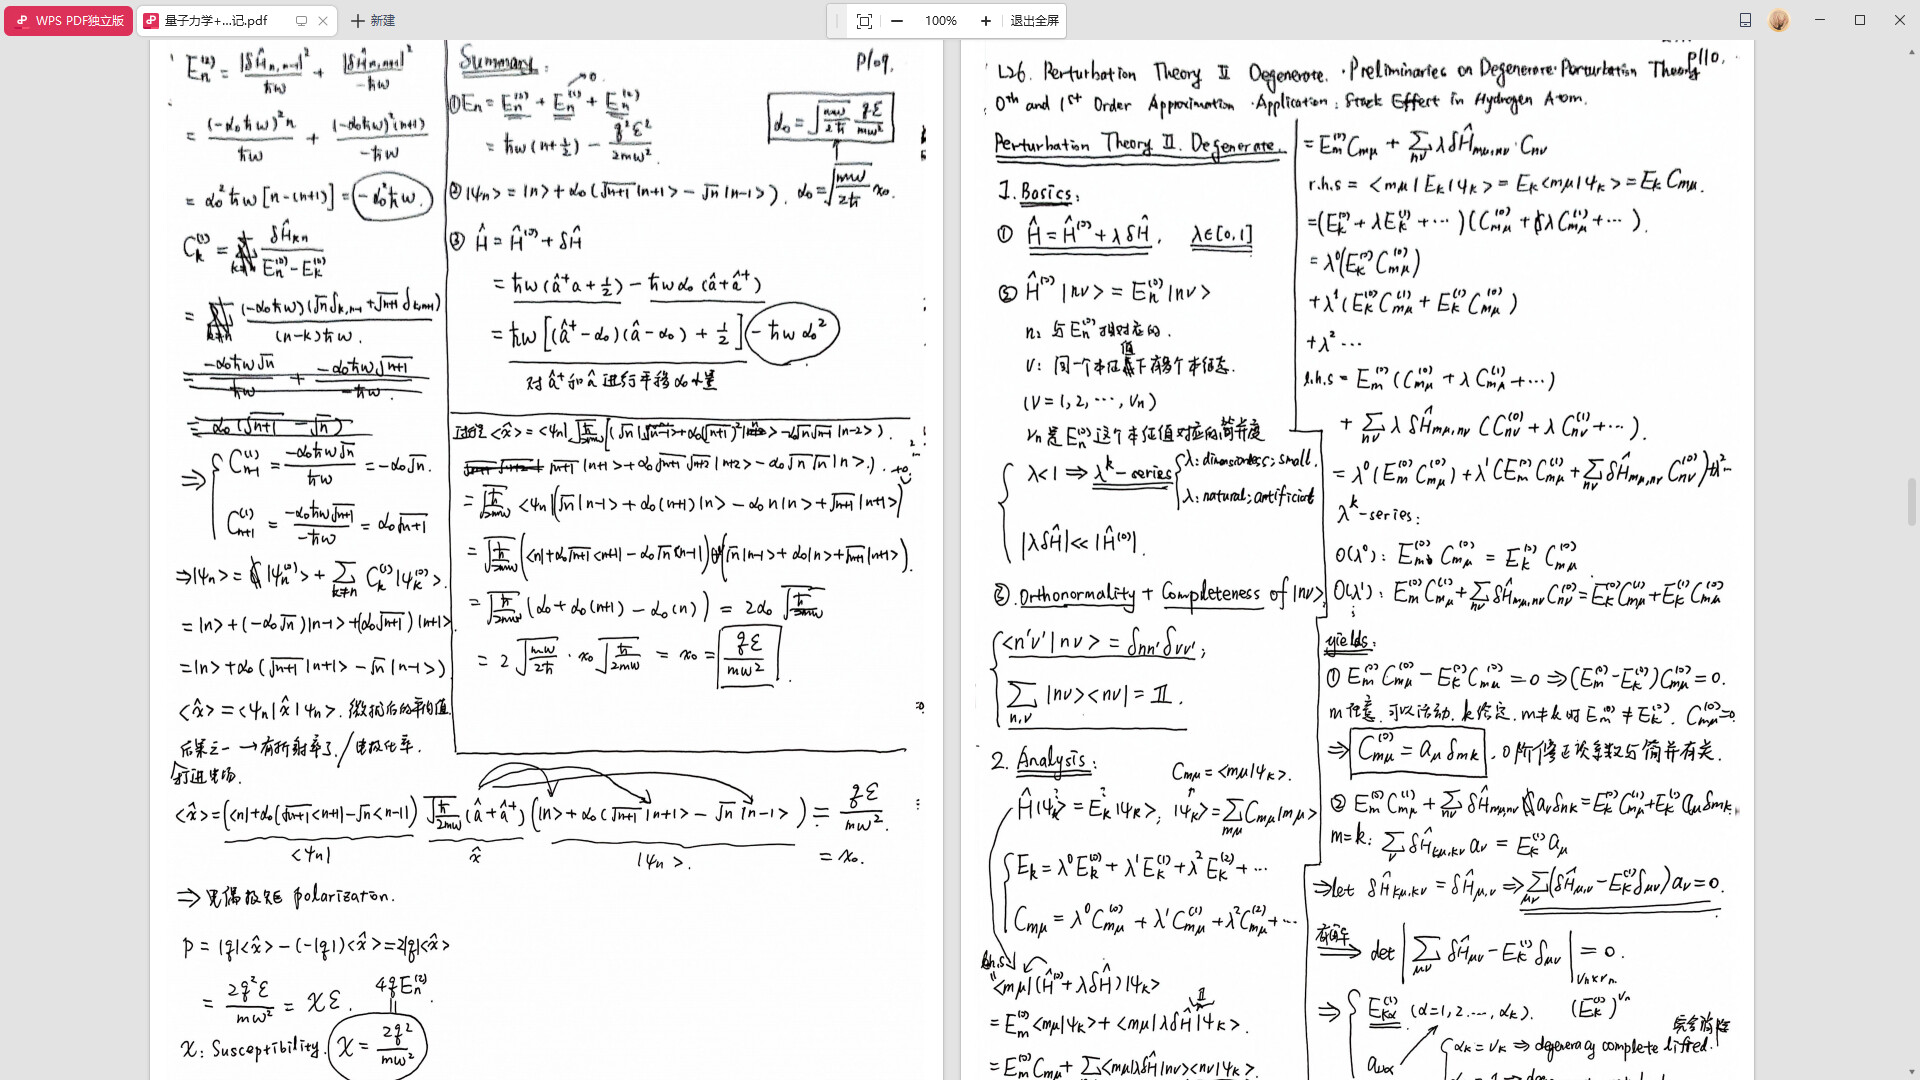 WPS PDF独立版
量子力学+...记.pdf
新建
100%
退出全屏
E_n^{(2)} = |δĤ_{n,n-1}|²/ħω + |δĤ_{n,n+1}|²/-ħω
= (-α₀ħω)²n/ħω + (-α₀ħω)²(n+1)/-ħω
= α₀²ħω[n-(n+1)] = -α₀²ħω.
C_k^{(1)} = δĤ_{kn}/E_n^{(0)}-E_k^{(0)}
= (-α₀ħω)(√n δ_{k,n-1}+√n+1 δ_{k,n+1})/(n-k)ħω.
= -α₀ħω√n/ħω + -α₀ħω√n+1/-ħω
= α₀(√n+1 - √n)
⇒ { C_{n-1}^{(1)} = -α₀ħω√n/ħω = -α₀√n.
C_{n+1}^{(1)} = -α₀ħω√n+1/-ħω = α₀√n+1
⇒|ψ_n> = |ψ_n^{(0)}> + Σ_{k≠n} C_k^{(1)}|ψ_k^{(0)}>.
= |n> + (-α₀√n)|n-1> + (α₀√n+1)|n+1>
= |n> + α₀(√n+1|n+1> - √n|n-1>)
<x̂> = <ψ_n|x̂|ψ_n>. 微扰后的平均值
后果之一 → 有折射率了/电极化率.
打进电场.
<x̂> = (<n|+α₀(√n+1<n+1|-√n<n-1|) √ħ/2mω (â+â⁺) (|n>+α₀(√n+1|n+1> - √n|n-1>) = qε/mω².
<ψ_n| x̂ |ψ_n>. = x₀.
⇒ 电偶极矩 polarization.
P = |q|<x̂> - (-|q|)<x̂> = 2|q|<x̂>
= 2q²ε/mω² = χε. 4qE_n^{(2)}.
χ: Susceptibility. χ = 2q²/mω²
Summary: P109.
①E_n = E_n^{(0)} + E_n^{(1)} + E_n^{(2)} →0.
= ħω(n+½) - q²ε²/2mω². α₀ = √mω/2ħ qε/mω²
②|ψ_n> = |n> + α₀(√n+1|n+1> - √n|n-1>). α₀ = √mω/2ħ x₀.
③ Ĥ = Ĥ^{(0)} + δĤ
= ħω(â⁺a + ½) - ħωα₀(â+â⁺)
= ħω[(â⁺-α₀)(â-α₀) + ½] - ħωα₀²
对â⁺和â进行平移α₀大量
= √ħ/2mω <ψ_n|(√n|n-1> + α₀(n+1)|n> - α₀n|n> + √n+1|n+1>)
= √ħ/2mω (<n|+α₀√n+1<n+1| - α₀√n<n-1|)(√n|n-1> + α₀|n> + √n+1|n+1>).
= √ħ/2mω (α₀ + α₀(n+1) - α₀(n)) = 2α₀ √ħ/2mω
= 2√mω/2ħ · x₀ √ħ/2mω = x₀ = qε/mω².
P110.
L26. Perturbation Theory II Degenerate. · Preliminaries on Degenerate Perturbation Theory
0th and 1st Order Approximation · Application: Stark Effect in Hydrogen Atom.
Perturbation Theory II. Degenerate.
1. Basics:
① Ĥ = Ĥ^{(0)} + λδĤ, λ∈[0,1]
② Ĥ^{(0)}|nν> = E_n^{(0)}|nν>
n: 与E_n^{(0)}相对应的.
ν: 同一个本征值下有多个本征态.
(ν = 1, 2, ⋯, ν_n)
ν_n是E_n^{(0)}这个本征值对应的简并度
{ λ<1 ⇒ λ^k-series { λ: dimensionless; small.
λ: natural; antificient
|λδĤ| ≪ |Ĥ^{(0)}|.
③. Orthonormality + Completeness of |nν>
{ <n'ν'|nν> = δ_{nn'}δ_{νν'};
Σ_{n,ν} |nν><nν| = 𝕀.
2. Analysis: C_{mμ} = <mμ|ψ_k>.
Ĥ|ψ_k> = E_k|ψ_k>, |ψ_k> = Σ_{mμ} C_{mμ}|mμ>
{ E_k = λ⁰E_k^{(0)} + λ¹E_k^{(1)} + λ²E_k^{(2)} + ⋯
C_{mμ} = λ⁰C_{mμ}^{(0)} + λ¹C_{mμ}^{(1)} + λ²C_{mμ}^{(2)} + ⋯
l.h.s
<mμ|(Ĥ^{(0)} + λδĤ)|ψ_k>
= E_m^{(0)}<mμ|ψ_k> + <mμ|λδĤ|ψ_k>. 𝕀
= E_m^{(0)}C_{mμ} + Σ<mμ|λδĤ|nν><nν|ψ_k>.
= E_m^{(0)}C_{mμ} + Σ_{nν} λδĤ_{mμ,nν}·C_{nν}
r.h.s = <mμ|E_k|ψ_k> = E_k<mμ|ψ_k> = E_kC_{mμ}.
= (E_k^{(0)} + λE_k^{(1)} + ⋯)(C_{mμ}^{(0)} + λC_{mμ}^{(1)} + ⋯).
= λ⁰(E_k^{(0)}C_{mμ}^{(0)})
+ λ¹(E_k^{(0)}C_{mμ}^{(1)} + E_k^{(1)}C_{mμ}^{(0)})
+ λ² ⋯
l.h.s = E_m^{(0)}(C_{mμ}^{(0)} + λC_{mμ}^{(1)} + ⋯)
+ Σ_{nν} λδĤ_{mμ,nν}(C_{nν}^{(0)} + λC_{nν}^{(1)} + ⋯).
= λ⁰(E_m^{(0)}C_{mμ}^{(0)}) + λ¹(E_m^{(0)}C_{mμ}^{(1)} + Σ_{nν}δĤ_{mμ,nν}C_{nν}^{(0)}) + λ²⋯
λ^k-series:
O(λ⁰): E_m^{(0)}C_{mμ}^{(0)} = E_k^{(0)}C_{mμ}^{(0)}
O(λ¹): E_m^{(0)}C_{mμ}^{(1)} + Σ_{nν}δĤ_{mμ,nν}C_{nν}^{(0)} = E_k^{(0)}C_{mμ}^{(1)} + E_k^{(1)}C_{mμ}^{(0)}
yields:
① E_m^{(0)}C_{mμ}^{(0)} - E_k^{(0)}C_{mμ}^{(0)} = 0 ⇒ (E_m^{(0)}-E_k^{(0)})C_{mμ}^{(0)} = 0.
m任意, 可以活动, k给定. m≠k时E_m^{(0)} ≠ E_k^{(0)}, C_{mμ}^{(0)}=0
⇒ C_{mμ}^{(0)} = a_μδ_{mk}, 0阶修正该系数与简并有关.
② E_m^{(0)}C_{mμ}^{(1)} + Σ_{nν}δĤ_{mμ,nν} a_νδ_{nk} = E_k^{(0)}C_{mμ}^{(1)} + E_k^{(1)}a_μδ_{mk}.
m=k: Σ_ν δĤ_{kμ,kν}a_ν = E_k^{(1)}a_μ
⇒let δĤ_{kμ,kν} = δĤ_{μ,ν} ⇒ Σ_{μν}(δĤ_{μ,ν} - E_k^{(1)}δ_{μν})a_ν = 0.
有解⇒ det|Σ_{μν} δĤ_{μν} - E_k^{(1)}δ_{μν}|_{ν_n×ν_n} = 0.
⇒ { E_{kα}^{(1)} (α=1,2…,α_k). (E_k^{(1)})^{ν_n}
完全消除
a_{να} { α_k = ν_k ⇒ degeneracy complete lifted.